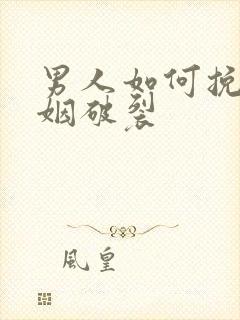 男人如何挽
姻破裂
風皇